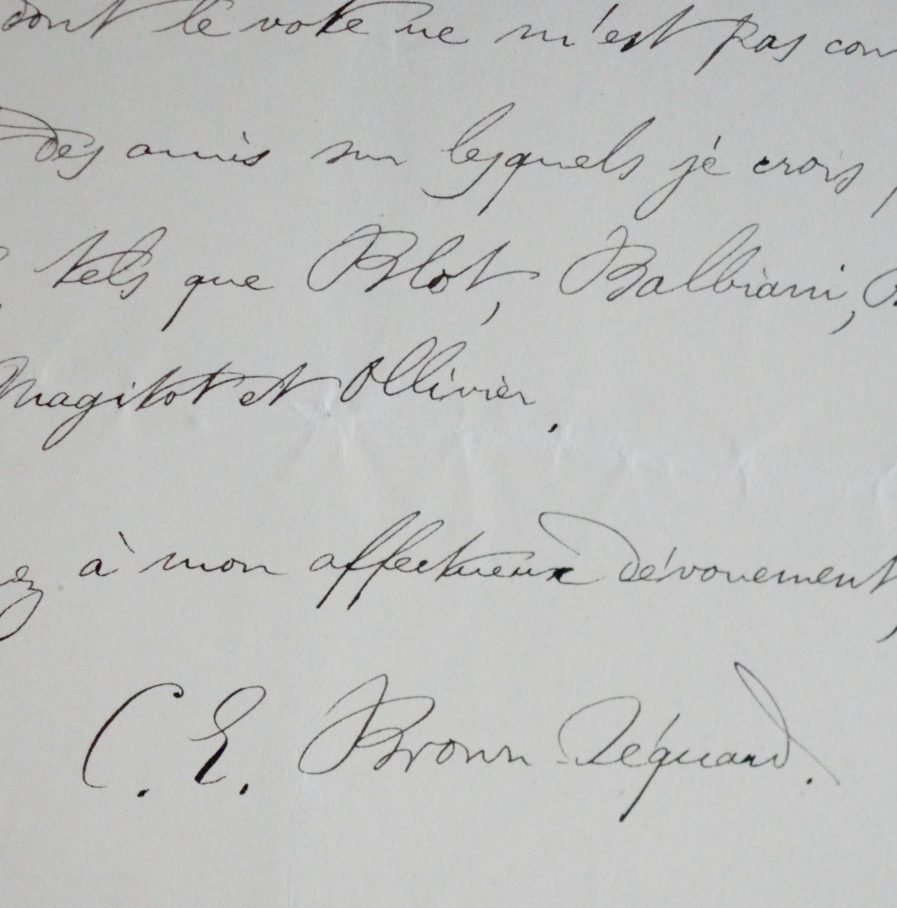 dont le vote ne m'est pas con
des amis sur lesquels je crois
tels que Blot, Balbiani,
Magitot et Ollivier.
ez à mon affectueux dévouement,
C. E. Brown-Séquard.